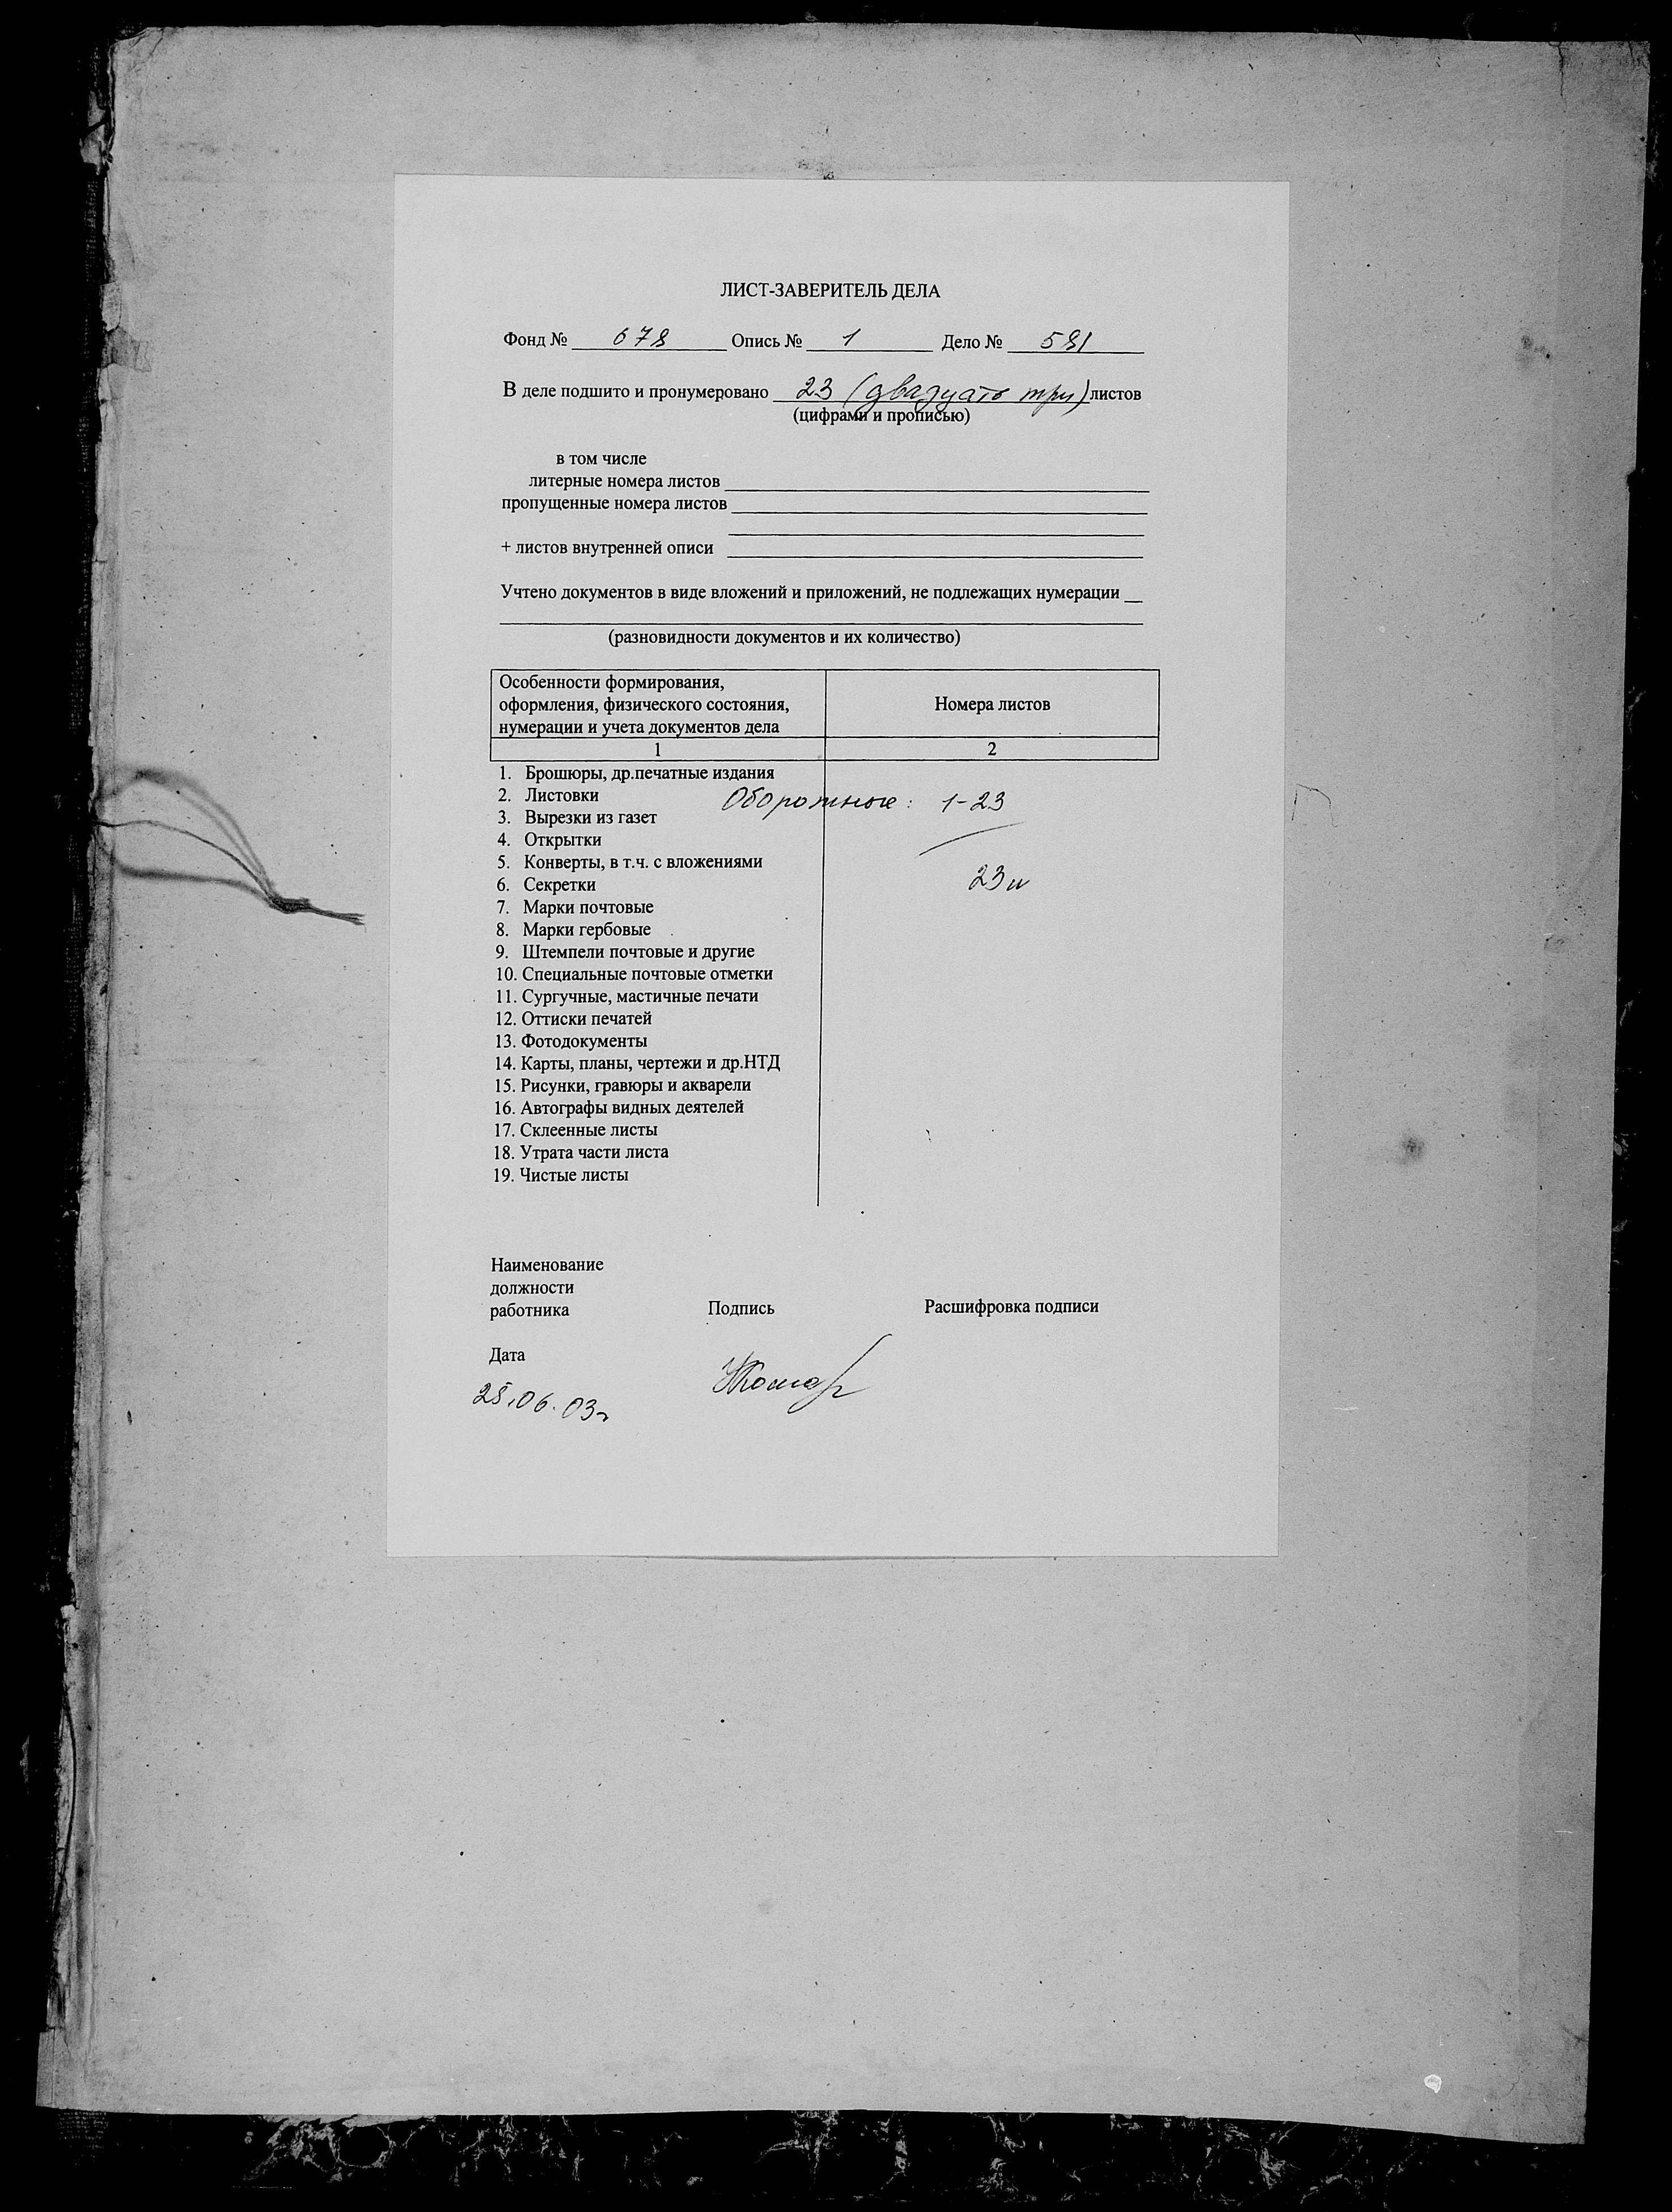 ЛИСТ-ЗАВЕРИТЕЛЬ ДЕЛА
Фонд № 678 Опись № 1 Дело № 581
В деле подшито и пронумеровано 23 (двадцать три) листов
(цифрами и прописью)
в том числе
литерные номера листов
пропущенные номера листов
+ листов внутренней описи
Учтено документов в виде вложений и приложений, не подлежащих нумерации
(разновидности документов и их количество)
Особенности формирования,
оформления, физического состояния,
нумерации и учета документов дела
Номера листов
1 2
1. Брошюры, др.печатные издания
2. Листовки
Оборотные: 1-23
3. Вырезки из газет
4. Открытки
5. Конверты, в т.ч. с вложениями
6. Секретки
23
7. Марки почтовые
8. Марки гербовые
9. Штемпели почтовые и другие
10. Специальные почтовые отметки
11. Сургучные, мастичные печати
12. Оттиски печатей
13. Фотодокументы
14. Карты, планы, чертежи и др.НТД
15. Рисунки, гравюры и акварели
16. Автографы видных деятелей
17. Склеенные листы
18. Утрата части листа
19. Чистые листы
Наименование
должности
работника Подпись Расшифровка подписи
Дата
25.06.03г